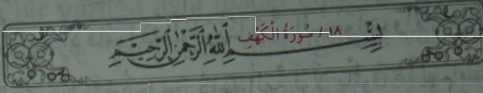 ١٨ / سُورَةُ الْكَهْفِ
بِسْمِ ٱللَّهِ ٱلرَّحْمَٰنِ ٱلرَّحِيمِ